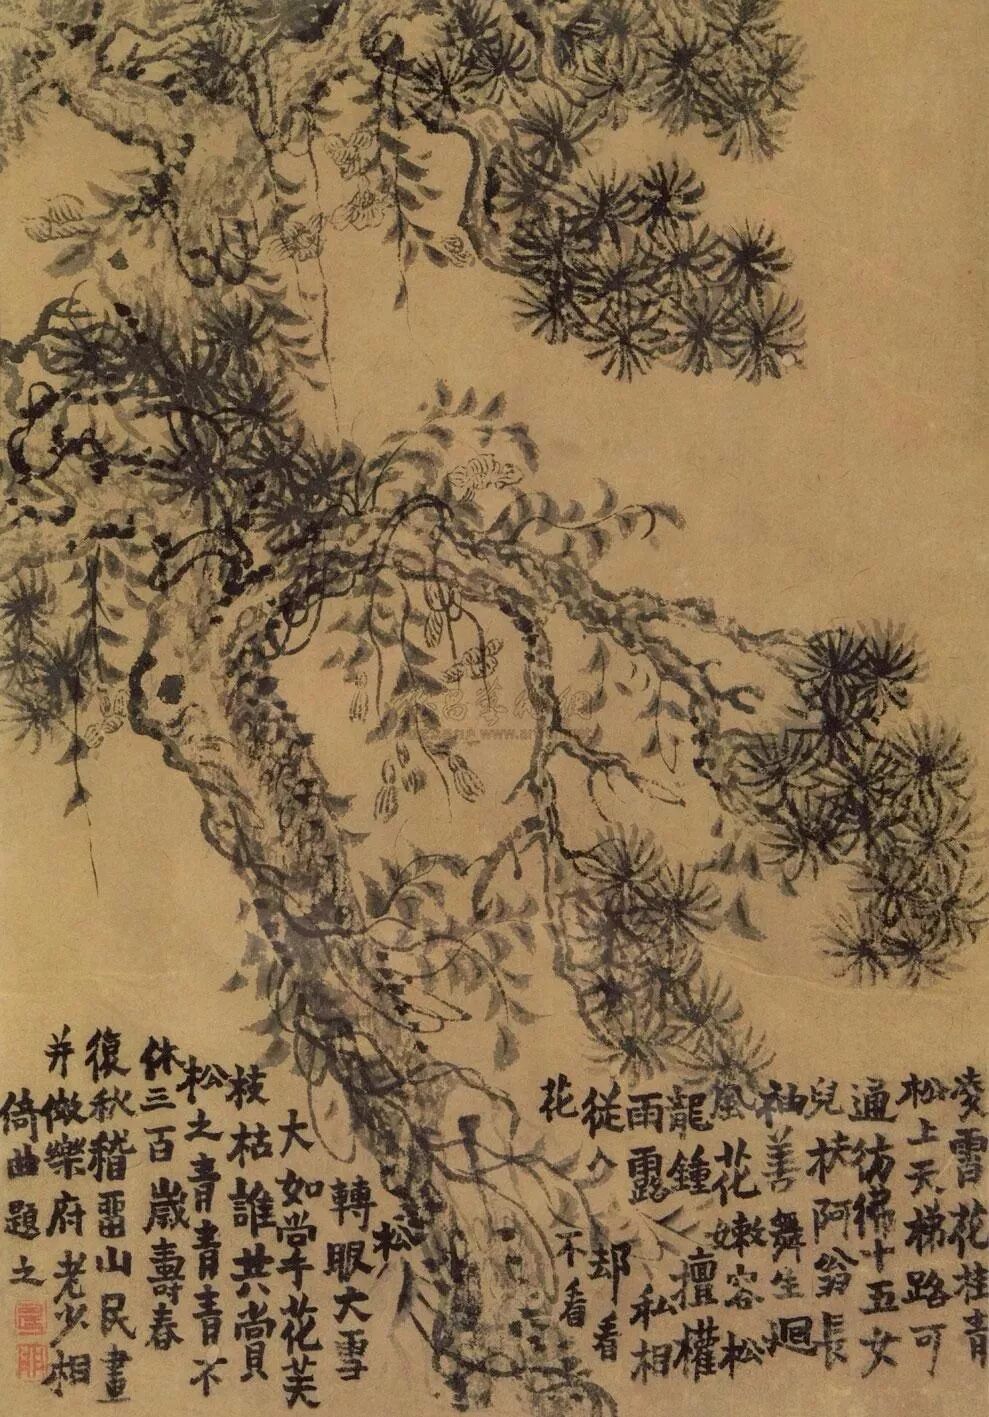 凌霄花挂青
松上天梯路可
通彷彿十五女
兒扶阿翁長
袖善舞生迴
風花嫩容松
龍鍾擅權
雨露私相
從今却看
花不看
松
轉眼大雪
大如掌花萎
枝枯誰共賞
松之青青青不
休三百歲壽春
復秋稽畱山民畫
并倣樂府老少相
倚曲題之